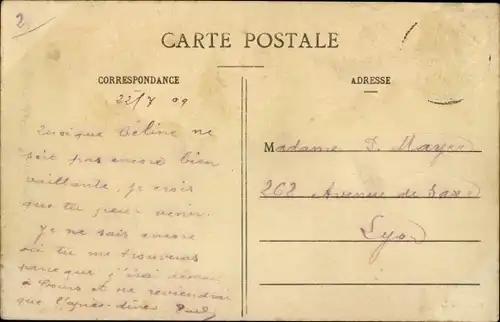 2
CARTE POSTALE
CORRESPONDANCE
22/7 09
Quoique Céline ne
soit pas encore bien
vaillante, je crois
que tu peux venir.
Je ne sais encore
où tu me trouveras
parce que j'irai demain
à Tours et ne reviendrai
que l'après-dîner Paul
ADRESSE
Madame D. Mayer
262 Avenue de Saxe
Lyon